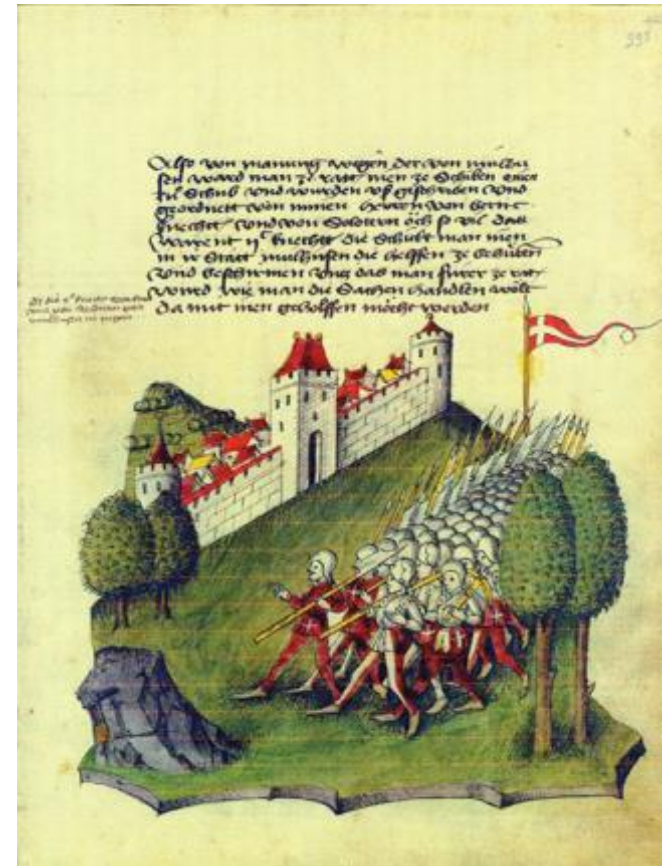 Also von manung wegen der von mulhu
sen ward man ze ratt inen ze schiken
hil schub vnd wurden vs geschriben vnd
geordnett von minen herren von Bern
knecht vnd von Solotern öch so vil das
warent ii knecht die schikt man inen
in ir Statt mulhusen die helffen ze behuten
vnd beschirmen vntz das man furer ze ratt
wurd wie man die Sachen handlen wölt
da mit inen geholffen möcht werden